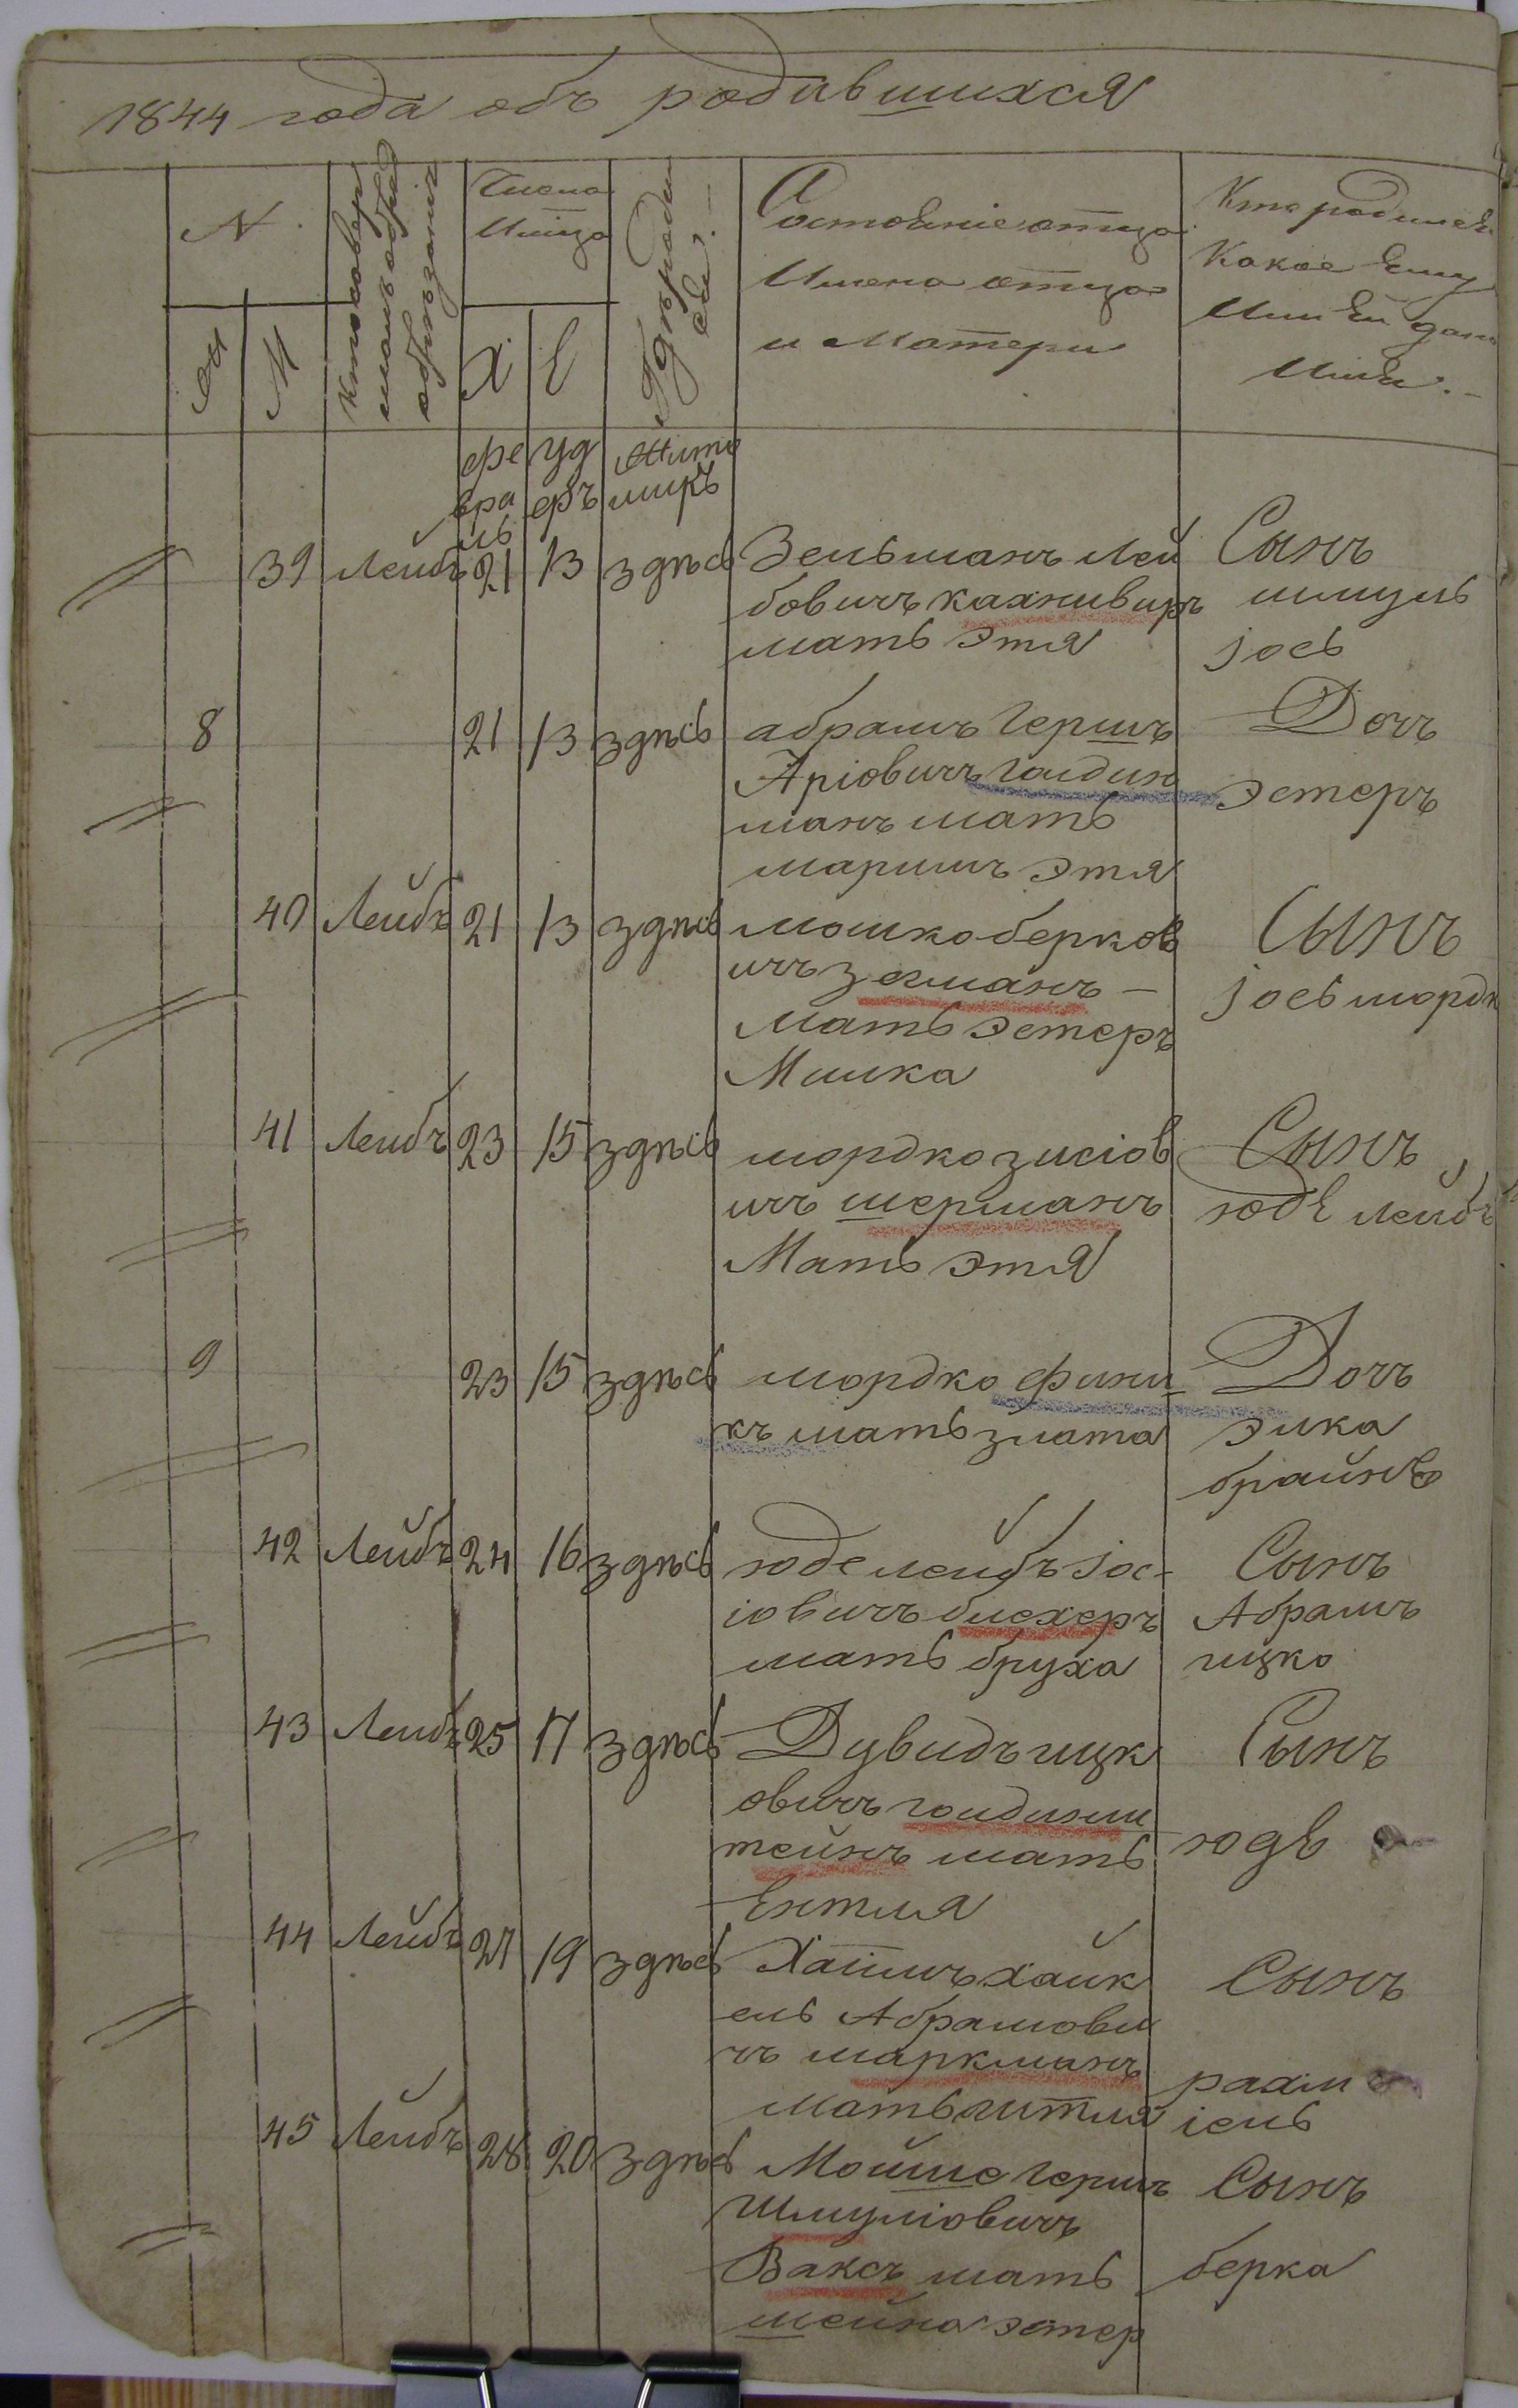 1844 года объ родившихся
N
Кто совер
шалъ обряд
обрѣзанія
Числа
Мѣсяца
Гдѣ роди
лся
Состояніе отца
Имена отца
и Матери
Кто родился
Какое Ему
Или Ей дано
Имя
М
Х
Е
фе
вра
ль
уд
еръ
Жито
миръ
39 Лейбъ 21 13 здѣсь Зельманъ Лей
бовичъ кахниверъ
мать Этя
Сынъ
шмуль
jось
8 21 13 здѣсь абрамъ Гершъ
Аріовичъ Гольдин
манъ мать
маримъ Этя
Дочъ
Эстеръ
40 Лейбъ 21 13 здѣсь мошко берков
ичъ зогманъ —
Мать Эстеръ
Милка
Сынъ
jось мордк
41 Лейбъ 23 15 здѣсь мордко зисіов
ичъ шерманъ
Мать Этя
Сынъ
юдЕ лейбъ
9 23 15 здѣсь мордко фини
къ мать злата
Дочъ
Элка
брайнѣ
42 Лейбъ 24 16 здѣсь юде лейбъ jос-
іовичъ блехеръ
мать бруха
Сынъ
Абрамъ
ицко
43 Лейбъ 25 17 здѣсь Дувидъ ицк
овичъ гольдинш
тейнъ мать
Ентля
Сынъ
юдѣ
44 Лейбъ 27 19 здѣсь Хаимъ хайк
ель Абрамови
чъ маркманъ
Мать гитля
Сынъ
рахм
іель
45 Лейбъ 28 20 здѣсь Мойше Гершъ
Шмуліовичъ
Ваксъ мать
шейна эстер
Сынъ
берка